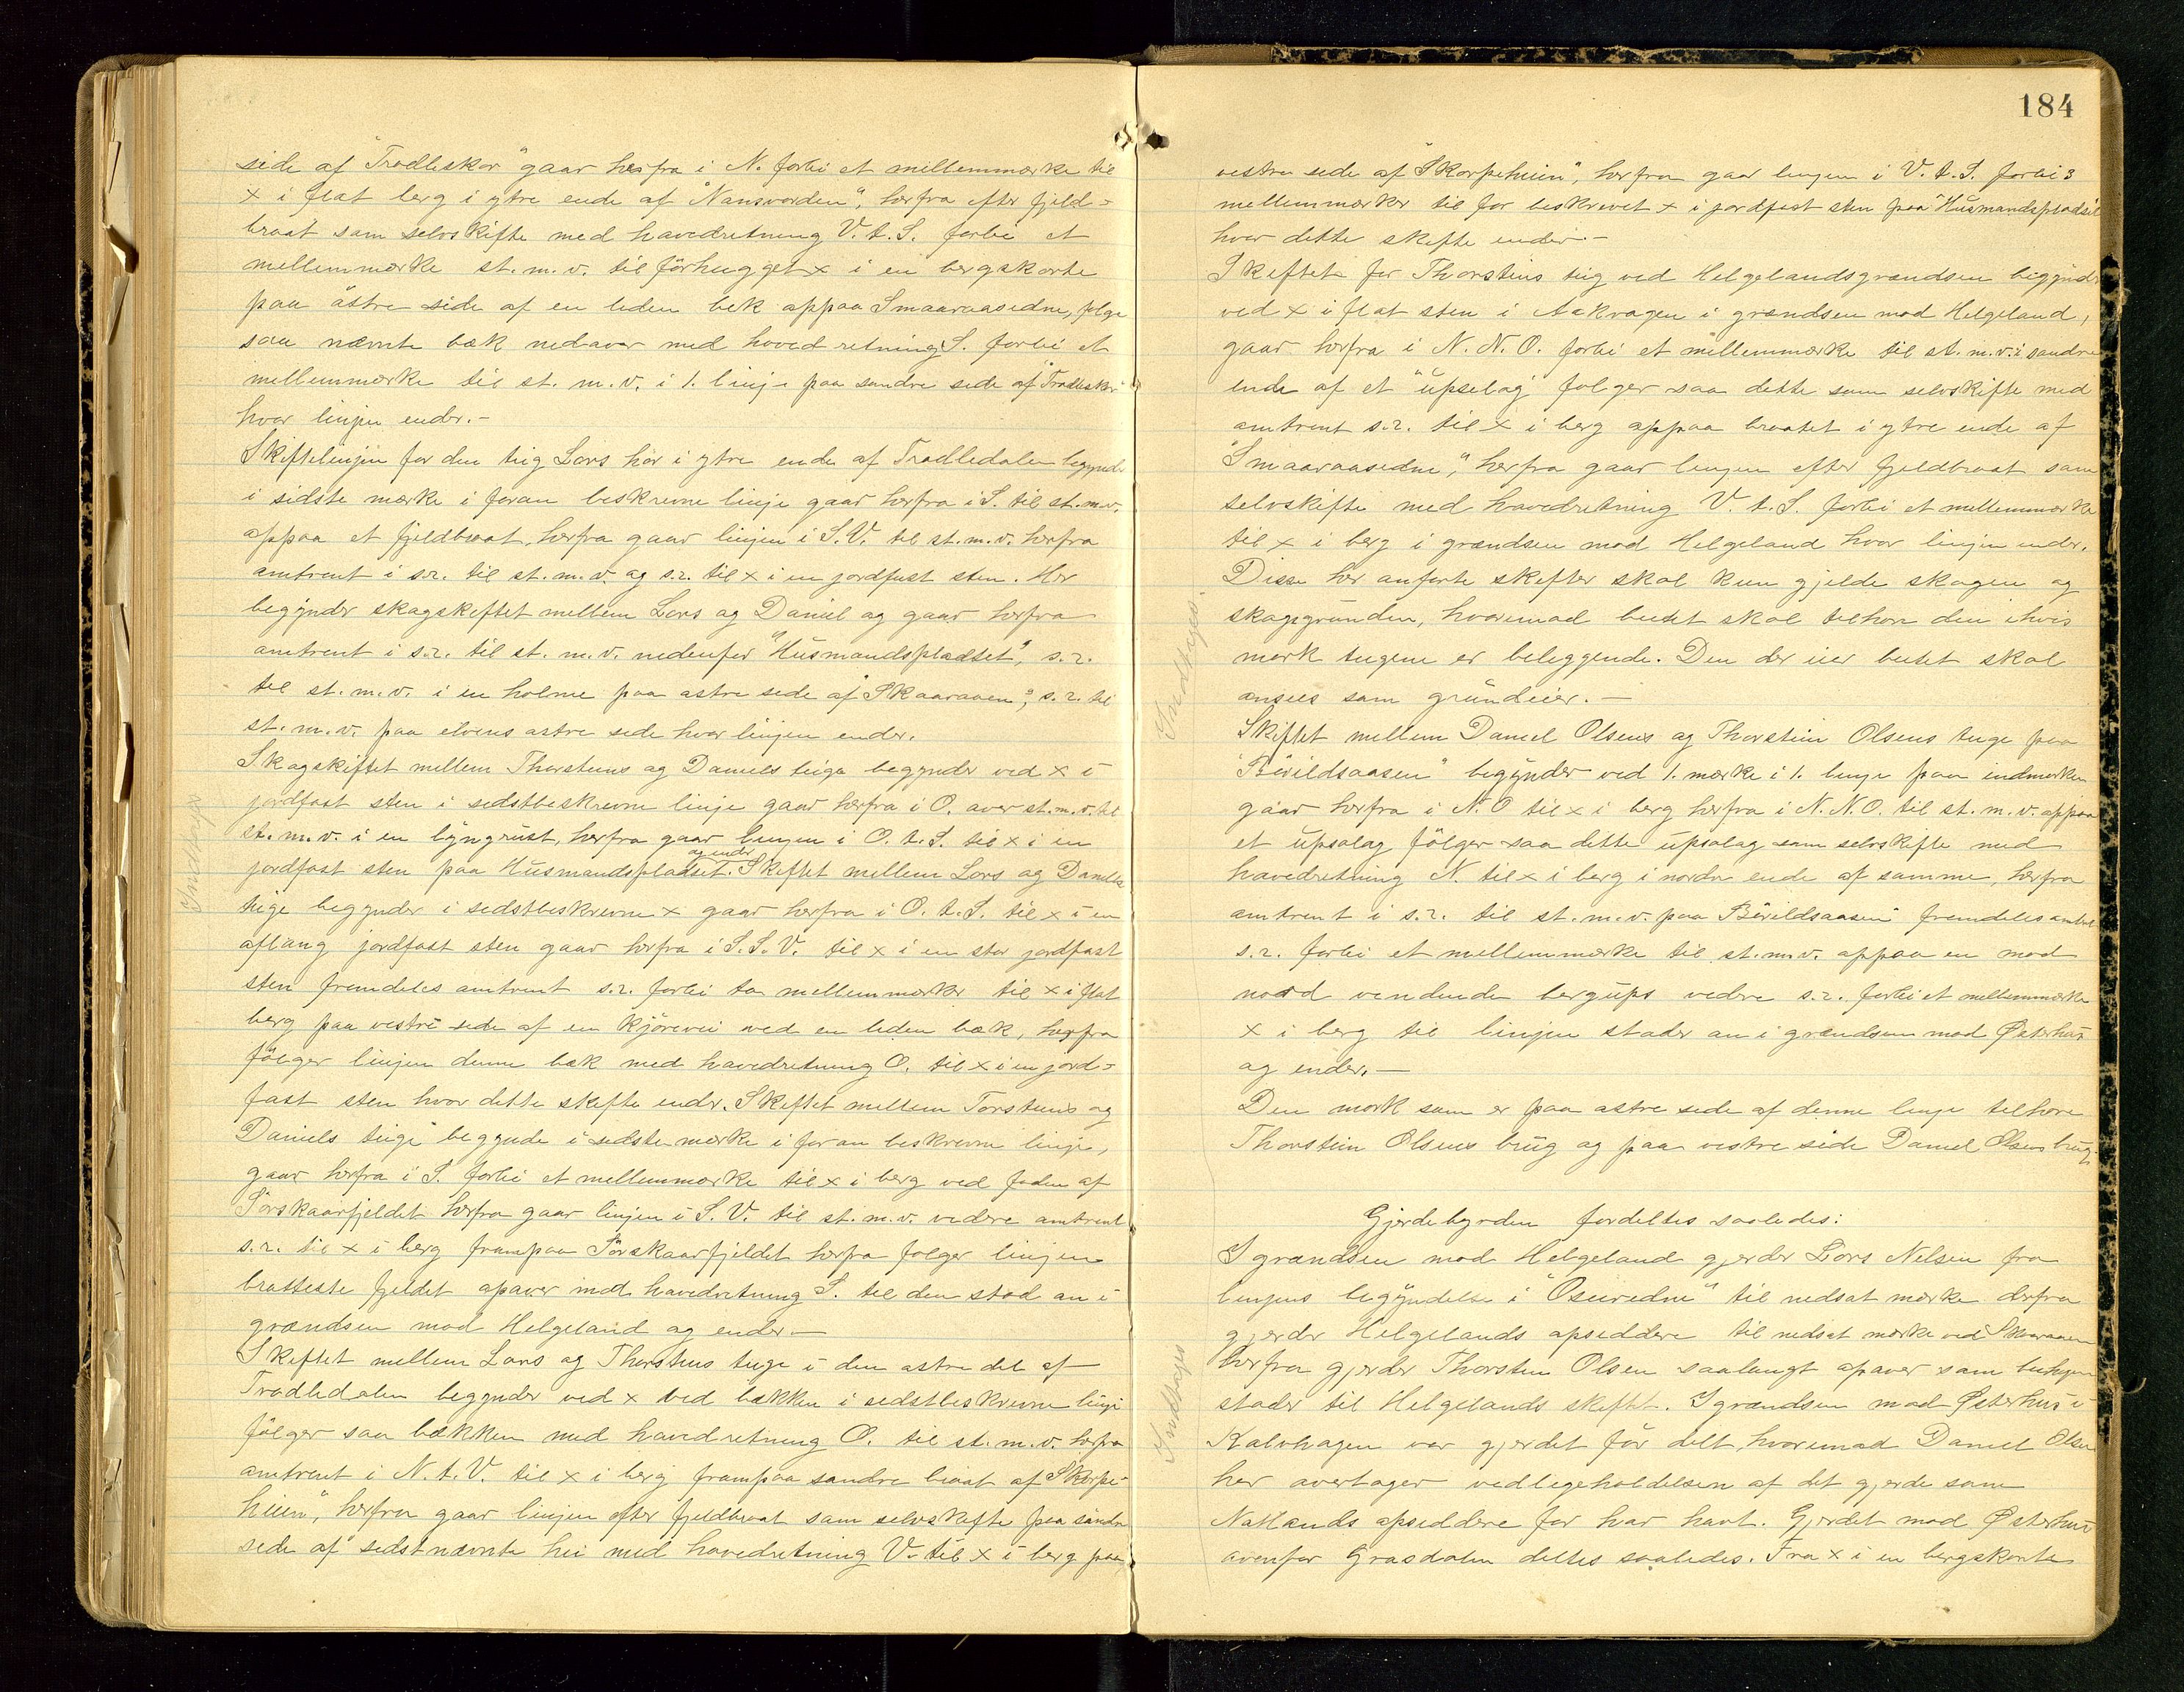 side af "Tradleskar" gaar herfra i N. forbi et mellemmærke til
x i flat berg i ytre ende af "Nansvorden", herfra efter fjeld-
braat som selvskifte med hovedretning V.t.S. forbi et
mellemmærke st.m.v. til förhugget x i en bergskorte
paa östre side af en liden bek oppaa Smaaraasedne, følge
saa nævnte bæk nedover med hoved retning S. forbi et
mellemmærke til st. m. v. i 1. linje paa søndre side af "Tradleskar"
hvor linjen ender.-
Skiftelinjen for den teig Lars har i ytre ende af Tradledalen begynder
i sidste mærke i foran beskrevne linje gaar herfra i S. til st.m.v.
oppaa et fjeldbraat, herfra gaar linjen i S.V. til st.m.v. herfra
omtrent i s.r. til st.m.v. og s.r. til x i en jordfast sten. Her
begynder skogskiftet mellem Lars og Daniel og gaar herfra
omtrent i s.r. til st. m.v. nedenfor "Husmandspladset", s.r.
til st.m.v. i en holme paa østre side af "Skaaraaen", s.r. til
st.m.v. paa elvens østre side hvor linjen ender.
Skogskiftet mellem Thorsteins og Daniels teiga begynder ved x i
jordfast sten i sidstbeskrevne linje gaar herfra i O. over st.m.v. til
st.m.v. i en lyngrust, herfra gaar linjen i O.t.S. til x i en
og ender
jordfast sten paa Husmandspladset. Skiftet mellem Lars og Daniels
teige begynder i sidstbeskrevne x gaar herfra i O.t.S. til x i en
aflang jordfast sten gaar herfra i S.S.V. til x i en stor jordfast
sten fremdeles omtrent s.r. forbi to mellemmærker til x i flat
berg paa vestre side af en kjörevei ved en liden bæk, herfra
fölger linjen denne bæk med hovedretning O. til x i en jord-
fast sten hvor dette skifte ender. Skiftet mellem Torsteins og
Daniels teige begynde i sidste mærke i foran beskrevne linje,
gaar herfra i S. forbi et mellemmærke til x i berg ved foden af
Sörskaarfjeldet herfra gaar linjen i S.V. til st.m.v. videre omtrent
s.r. til x i berg frampaa Sörskaarfjeldet herfra følger linjen
bratteste fjeldet opover med hovedretning S. til den stöd an i
grændsen mod Helgeland og ender.-
Skiftet mellem Lars og Thorsteins teige i den østre del af
Tradledalen begynder ved x ved bækken i sidstbeskrevne linje
fölger saa bækken med hovedretning O. til st.m.v. herfra
omtrent i N.t.V. til x i berg frampaa søndre braat af "Skorpe-
heien", herfra gaar linjen efter fjeldbraat som selvskifte paa søndre
side af sidstnævnte hei med hovedretning V. til x i berg paa
Indtages
184
vestre side af "Skorpeheien", herfra gaar linjen i V.t.S. forbi 3
mellemmærker til før beskrevet x i jordfast sten paa "Husmandspladset"
hvor dette skifte ender.-
Skiftet for Thorsteins teig ved Helgelandsgrændsen begynder
ved x i flat sten i Aakragen i grændsen mod Helgeland,
gaar herfra i N.N.O. forbi et mellemmærke til st.m.v. i søndre
ende af et "upselag" følger saa dette som selvskifte med
omtrent s.r. til x i berg oppaa braatet i ytre ende af
"Smaaraasedne," herfra gaar linjen efter fjeldbraat som
selvskifte med hovedretning V.t.S. forbi et mellemmærke
til x i berg i grændsen mod Helgeland hvor linjen ender.
Disse her anførte skifter skal kun gjelde skogen og
skogsgrunden, hvoremod beitet skal tilhøre den i hvis
mark teigene er beliggende. Den der eier beitet skal
ansees som grundeier.-
Skiftet mellem Daniel Olsens og Thorstein Olsens teige paa
"Böveildsaasen" begynder ved 1. mærke i 1. linje paa indmarken
gaar herfra i N.O til x i berg herfra i N.N.O. til st.m.v. oppaa
et upsalag fölger saa dette upsalag som selvskifte med
hovedretning N. til x i berg i nordre ende af samme, herfra
omtrent i s.r. til st.m.v. paa Böveildsaasen fremdeles omtrent
s.r. forbi et mellemmærke til st.m.v. oppaa en mod
nord vendende bergups videre s.r. forbi et mellemmærke
x i berg til linjen støder an i grændsen mod Østerhus
og ender.-
Den mark som er paa østre side af denne linje tilhøre
Thorstein Olsens brug og paa vestre side Daniel Olsens brug.
Gjerdebyrden fordeltes saaledes:
I grændsen mod Helgeland gjerder Lars Nelsen fra
linjens begyndelse i "Oseuredne" til nedsat mærke derfra
gjerder Helgelands opsiddere til nedsat mærke ved Skaaraaen
herfra gjerder Thorsten Olsen saalangt opover som
støder til Helgelands skiftet. I grændsen mod Østerhus i
Kalvhagen var gjerdet för delt, hvoremod Daniel Olsen
her overtager vedligeholdelsen af det gjerde som
Natlands opsiddere før har havt. Gjerdet mod Østerhus
ovenfor Grasdalen deltes saaledes. Fra x i en bergskorte
Indtages.
Indtages